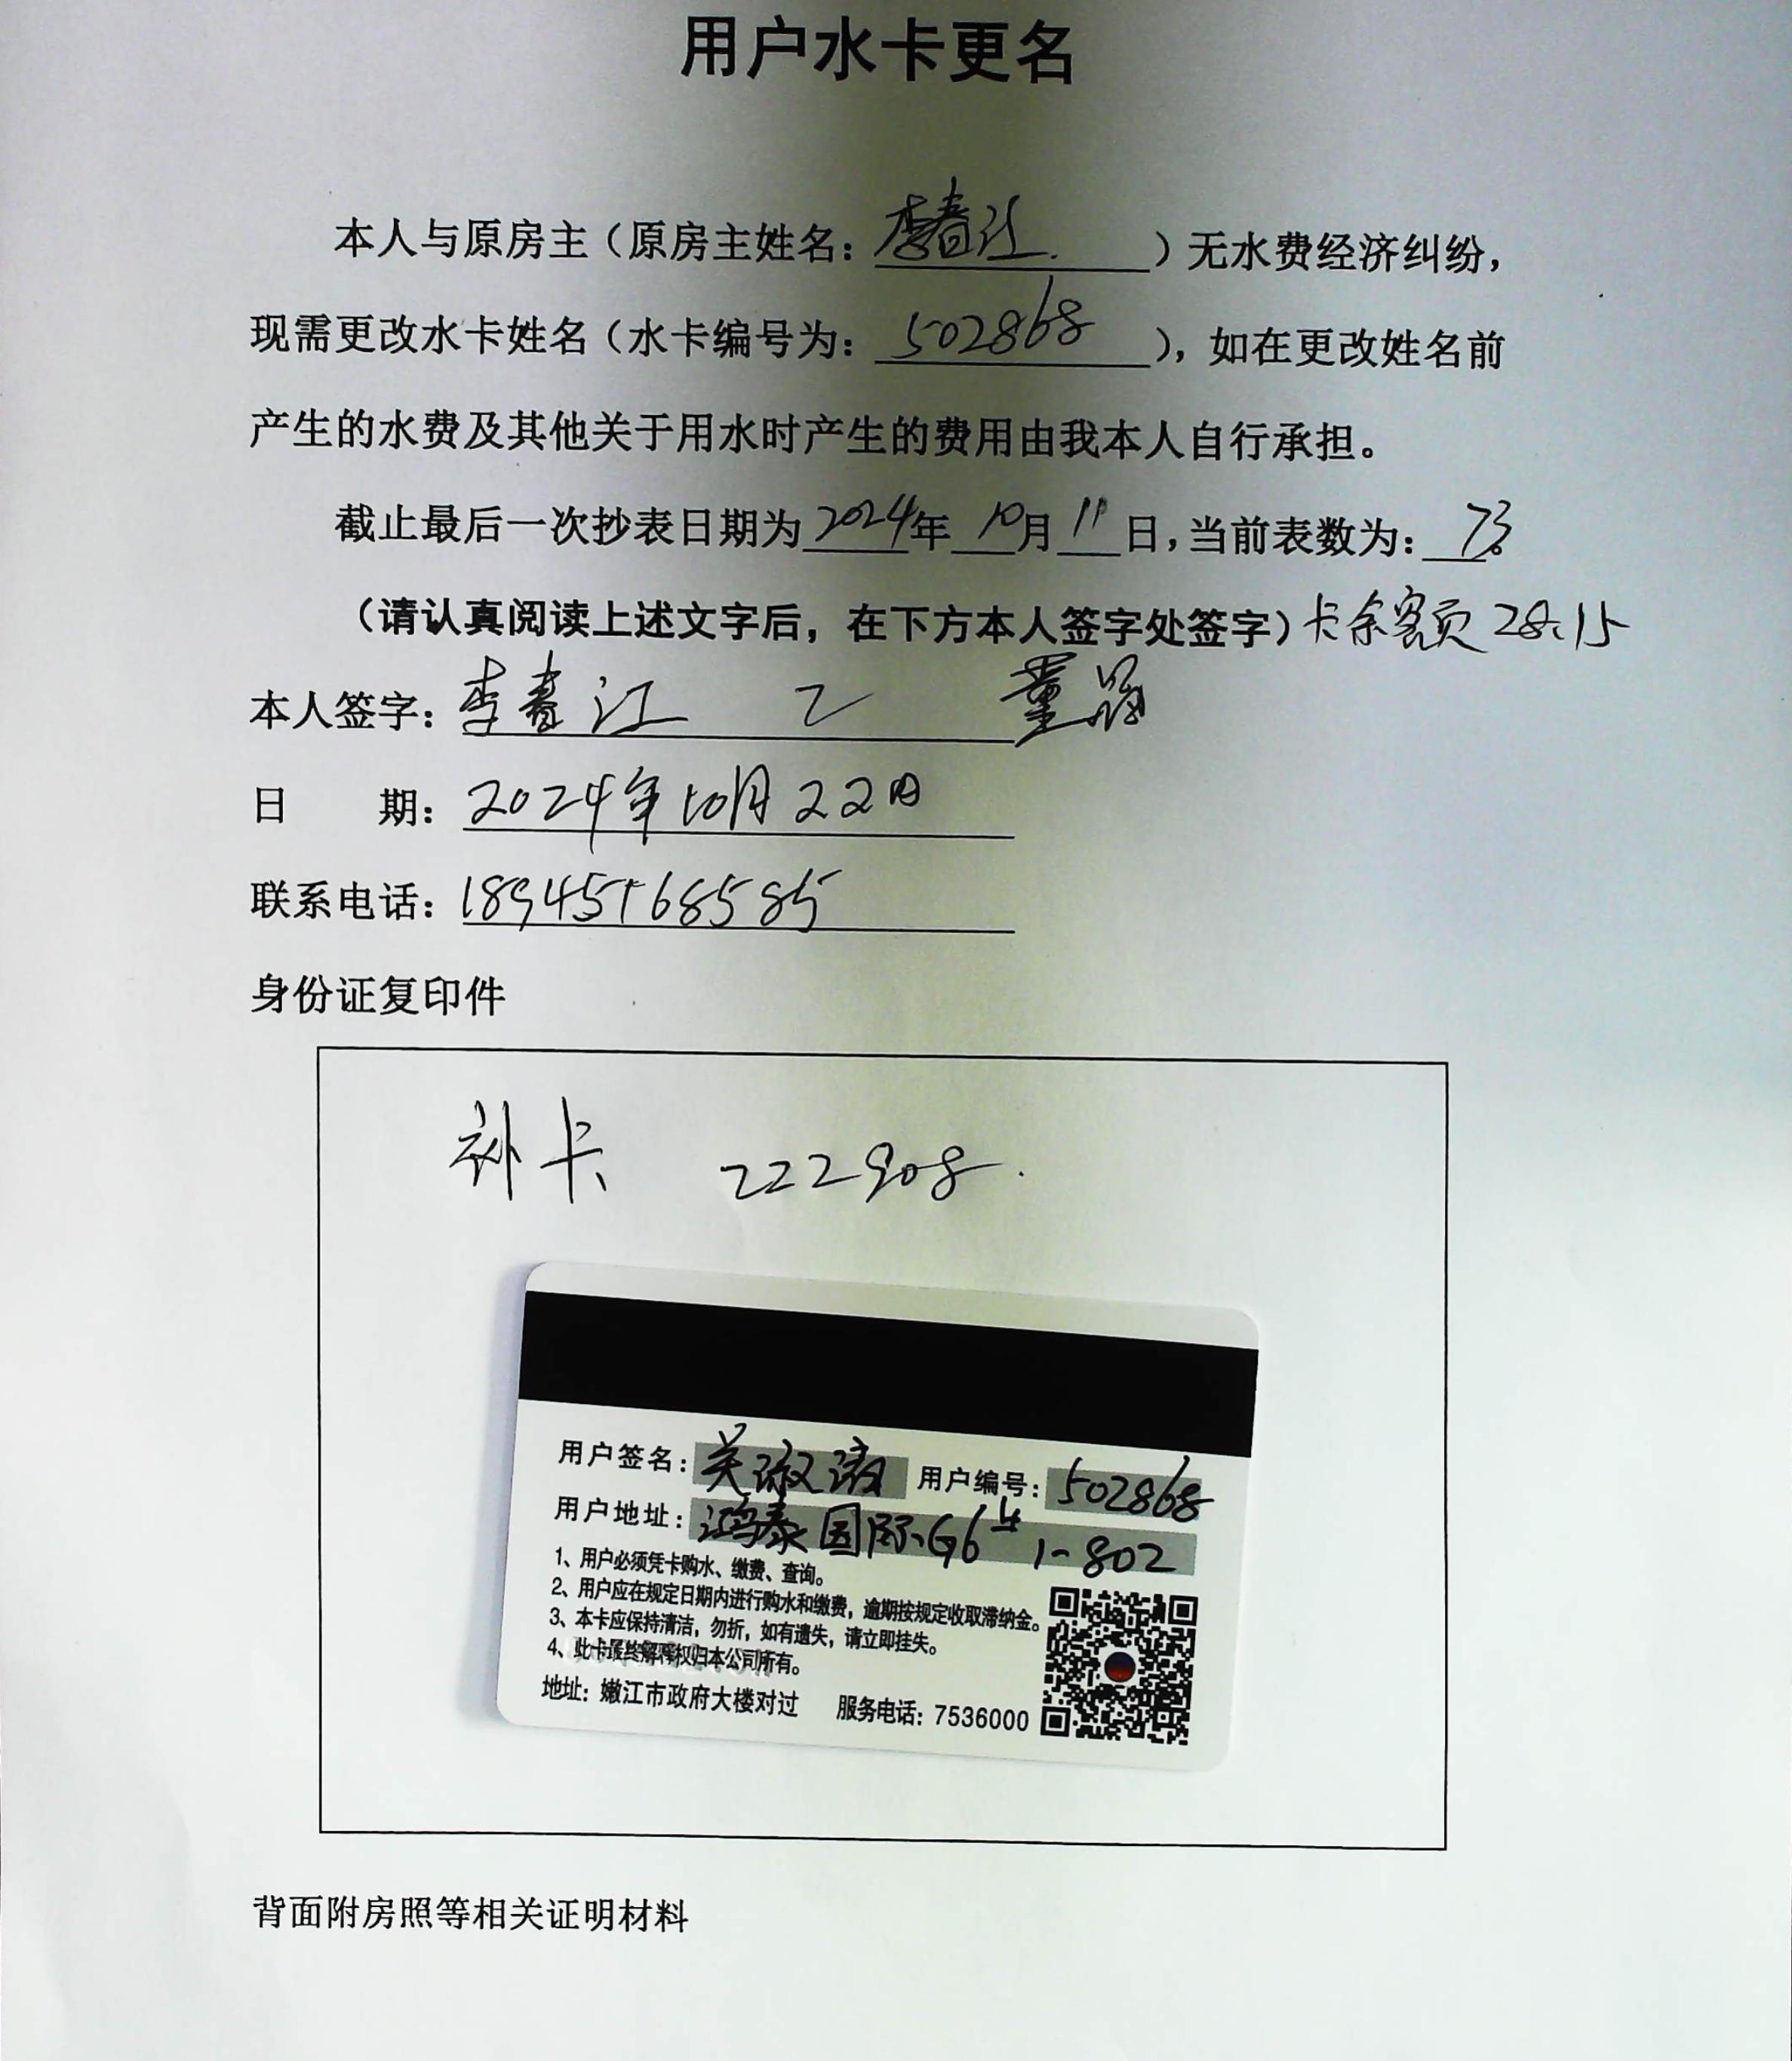 用户水卡更名
本人与原房主（原房主姓名：李春江）无水费经济纠纷，
现需更改水卡姓名（水卡编号为：502868），如在更改姓名前
产生的水费及其他关于用水时产生的费用由我本人自行承担。
截止最后一次抄表日期为2024年10月11日，当前表数为：73
（请认真阅读上述文字后，在下方本人签字处签字）卡余额28.15
本人签字：李春江 董
日 期：2024年10月22日
联系电话：18945168585
身份证复印件
补卡 222908.
用户签名：关淑 用户编号：502868
用户地址：鸿泰国际G6# 1-802
1、用户必须凭卡购水、缴费、查询。
2、用户应在规定日期内进行购水和缴费，逾期按规定收取滞纳金。
3、本卡应保持清洁，勿折，如有遗失，请立即挂失。
4、此卡最终解释权归本公司所有。
地址：嫩江市政府大楼对过 服务电话：7536000
背面附房照等相关证明材料